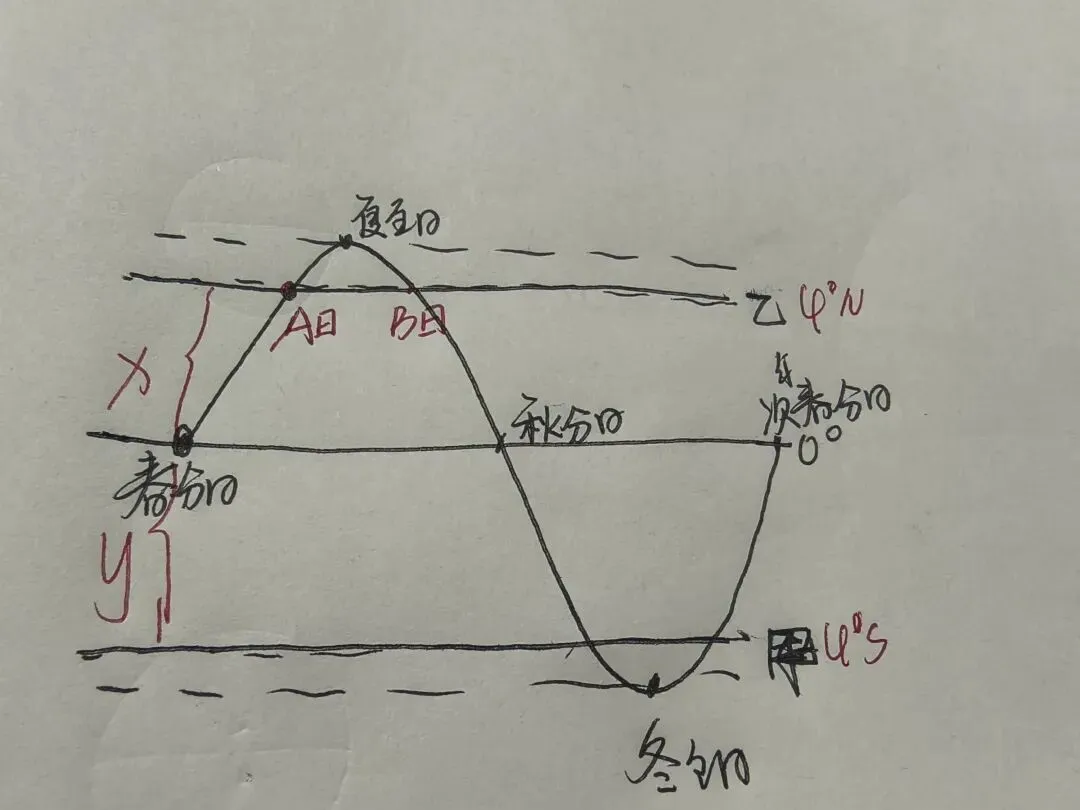 夏至日
乙 φ°N
A日 B日
X
次年春分日
秋分日
0°
春分日
y
甲 φ°S
冬至日